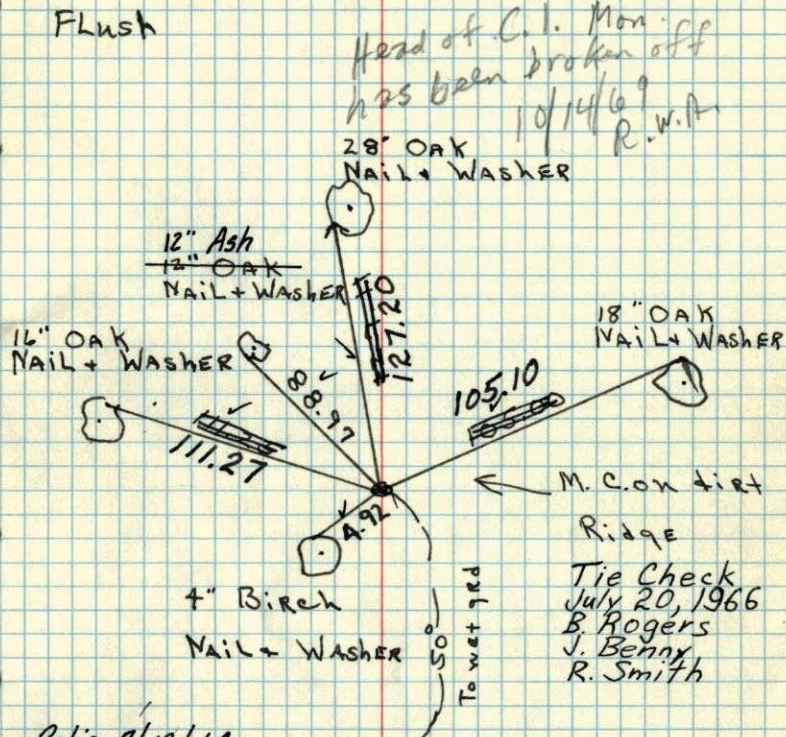 FLush
Head of C.I. Mon.
has been broken off
10/14/69
R.W.A.
28" OAK
NAIL + WASHER
12" Ash
12" OAK
NAIL + WASHER
127.20
18" OAK
NAIL + WASHER
16" OAK
NAIL + WASHER
88.97
105.10
111.27
4.92
M.C. on dirt
Ridge
4" BIRCH
NAIL + WASHER
50'
To wet grd
Tie Check
July 20, 1966
B. Rogers
J. Benny
R. Smith